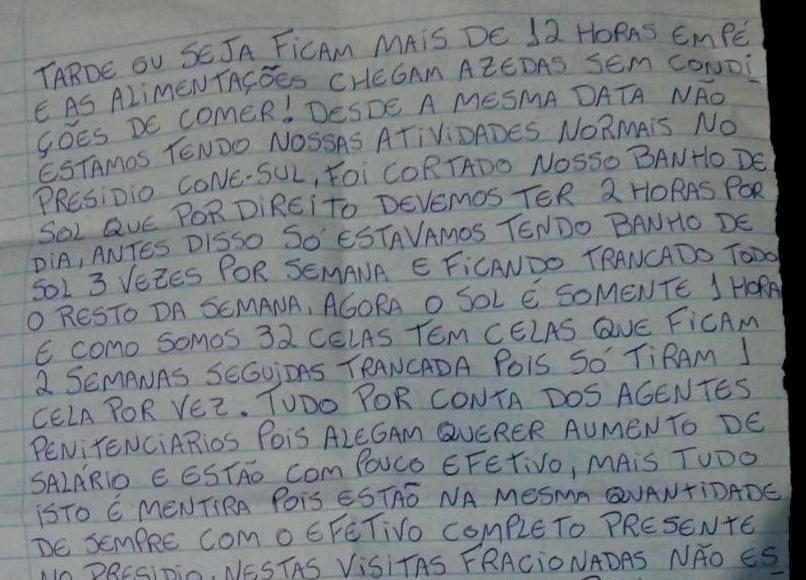 TARDE OU SEJA FICAM MAIS DE 12 HORAS EM PÉ
E AS ALIMENTAÇÕES CHEGAM AZEDAS SEM CONDI
ÇÕES DE COMER! DESDE A MESMA DATA NÃO
ESTAMOS TENDO NOSSAS ATIVIDADES NORMAIS NO
PRESIDIO CONE-SUL, FOI CORTADO NOSSO BANHO DE
SOL QUE POR DIREITO DEVEMOS TER 2 HORAS POR
DIA, ANTES DISSO SÓ ESTAVAMOS TENDO BANHO DE
SOL 3 VEZES POR SEMANA E FICANDO TRANCADO TODO
O RESTO DA SEMANA, AGORA O SOL É SOMENTE 1 HORA
E COMO SOMOS 32 CELAS TEM CELAS QUE FICAM
2 SEMANAS SEGUIDAS TRANCADA POIS SÓ TIRAM 1
CELA POR VEZ. TUDO POR CONTA DOS AGENTES
PENITENCIARIOS POIS ALEGAM QUERER AUMENTO DE
SALÁRIO E ESTÃO COM POUCO EFETIVO, MAIS TUDO
ISTO É MENTIRA POIS ESTAÕ NA MESMA QUANTIDADE
DE SEMPRE COM O EFETIVO COMPLETO PRESENTE
NO PRESIDIO, NESTAS VISITAS FRACIONADAS NÃO ES